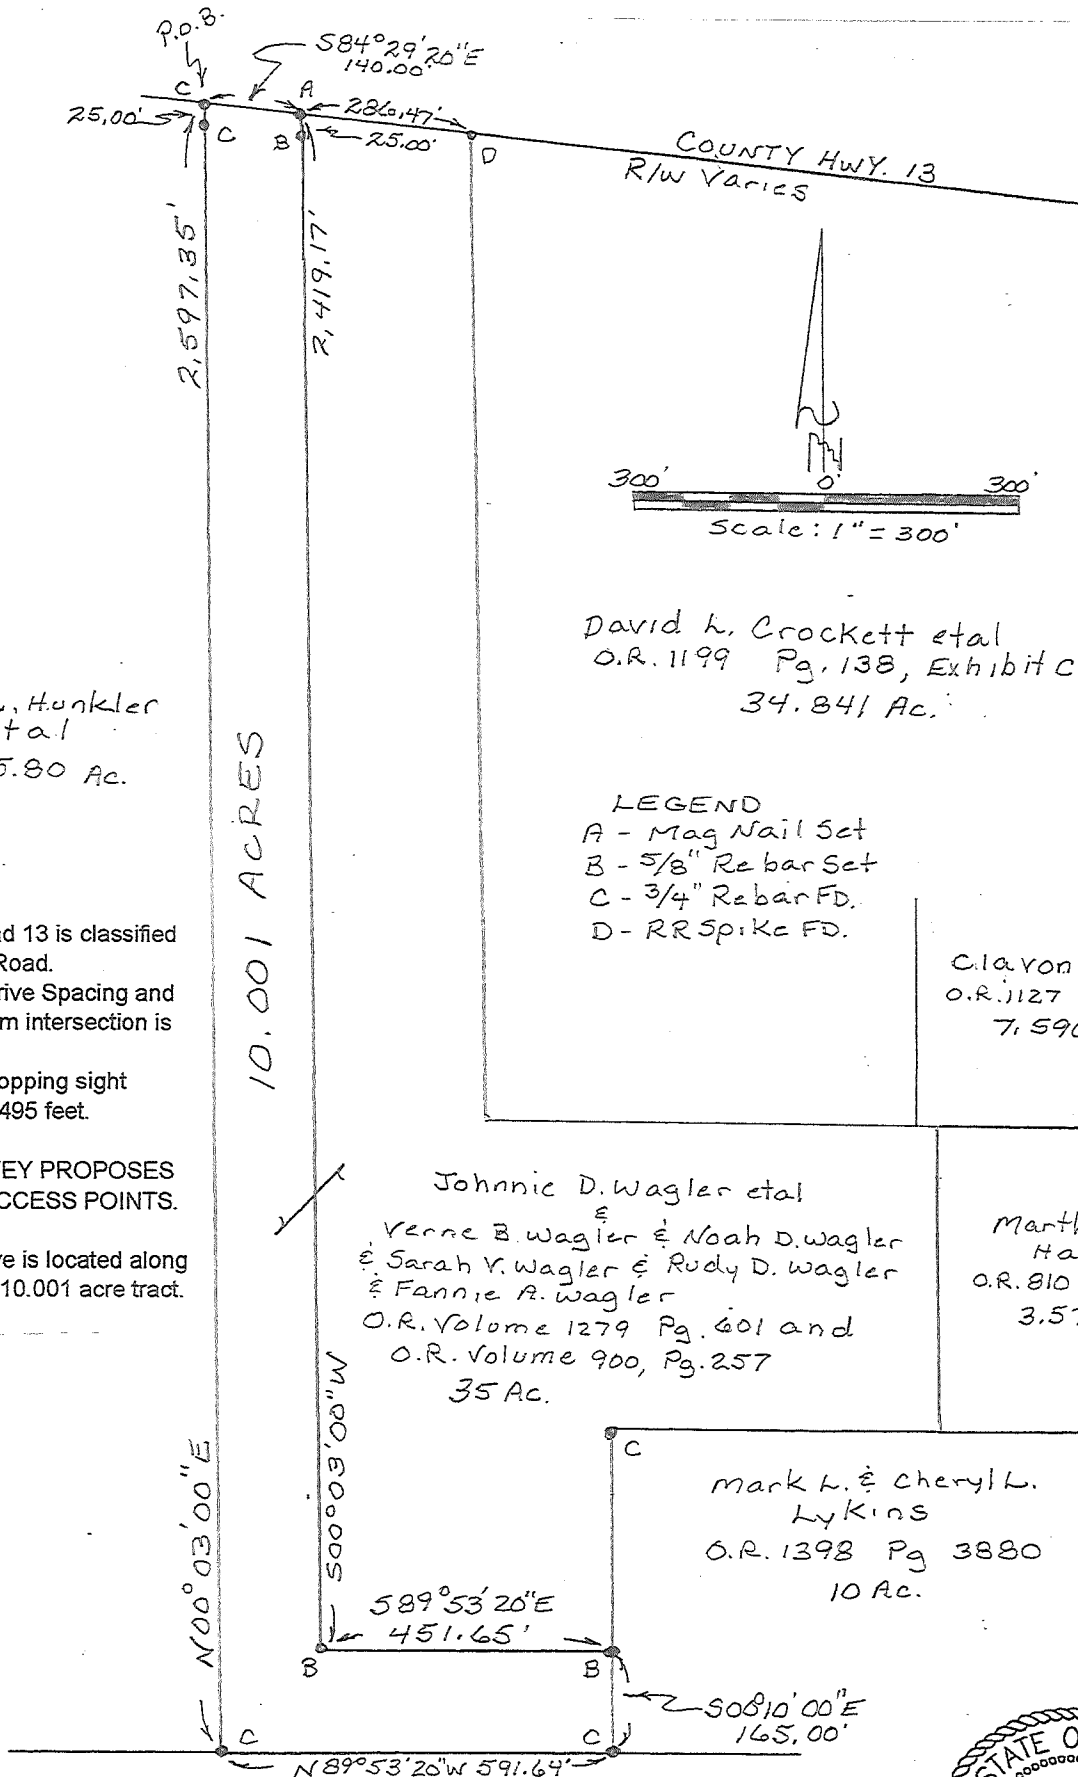 P.O.B.
S84°29'20"E
140.00'
C
A
25.00'
C
B
286.47'
25.00'
D
COUNTY HWY. 13
R/W Varies
2,597.35'
2,419.17'
N
300' 0' 300'
Scale: 1" = 300'
David L. Crockett etal
O.R. 1199 Pg. 138, Exhibit C
34.841 Ac.
L. Hunkler
tal
5.80 Ac.
10.001 ACRES
LEGEND
A - Mag Nail Set
B - 5/8" Rebar Set
C - 3/4" Rebar FD.
D - RR Spike FD.
d 13 is classified
Road.
rive Spacing and
m intersection is
opping sight
495 feet.
EY PROPOSES
CCESS POINTS.
e is located along
10.001 acre tract.
Clavon
O.R. 1127
7.590
Johnnie D. Wagler etal
&
Verne B. Wagler & Noah D. Wagler
& Sarah V. Wagler & Rudy D. Wagler
& Fannie A. Wagler
O.R. Volume 1279 Pg. 601 and
O.R. Volume 900, Pg. 257
35 Ac.
Marth
Ha
O.R. 810
3.57
N00°03'00"E
S00°03'00"W
C
Mark L. & Cheryl L.
Lykins
O.R. 1398 Pg 3880
10 Ac.
S89°53'20"E
451.65'
B
B
S0°10'00"E
165.00'
C
C
N89°53'20"W 591.64'
STATE O